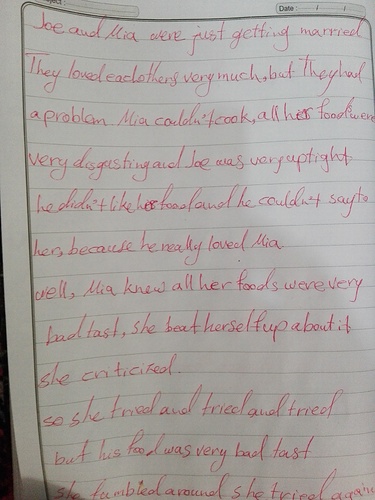 Date: / /
Joe and Mia were just getting married
They loved eachothers very much, but They had
a problem. Mia couldn't cook, all her foods were
very disgusting and Joe was very uptight.
he didn't like her food and he couldn't say to
her, because he really loved Mia
well, Mia knew all her foods were very
bad tast, she beat herself up about it
she criticized.
so she tried and tried and tried
but his food was very bad tast
she fumbled around she tried again